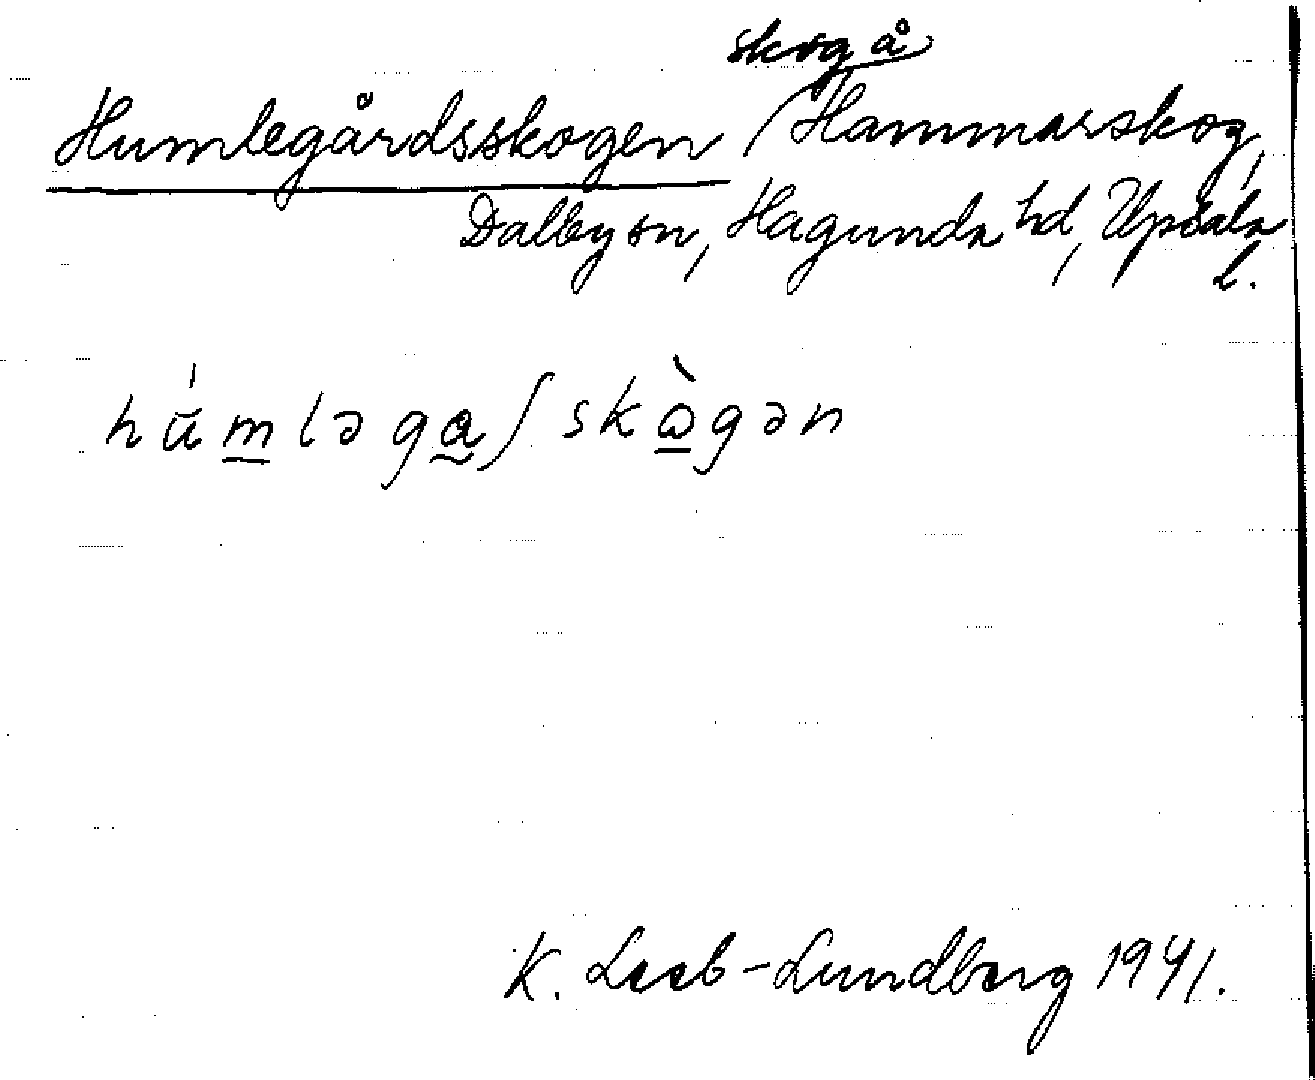 skog å
Humlegårdsskogen / Hammarskog,
Dalby sn, Hagunda hd, Upsala
l.
hú̆m̲ləga̰ʃskò̲gən
K. Leeb-Lundberg 1941.